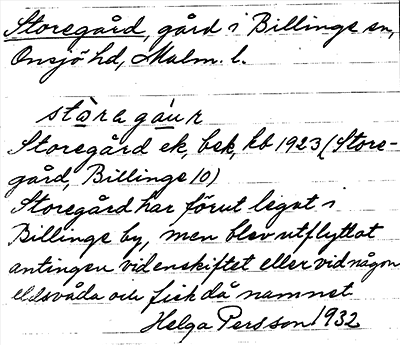 Storegård, gård i Billinge sn,
Onsjö hd, Malm. l.
stòra gá̀ur
Storegård ek, bek, kb 1923 (Store-
gård, Billinge 10)
Storegård har förut legat i
Billinge by, men blev utflyttat
antingen vid enskiftet eller vid någon
eldsvåda och fick då namnet
Helga Persson 1932